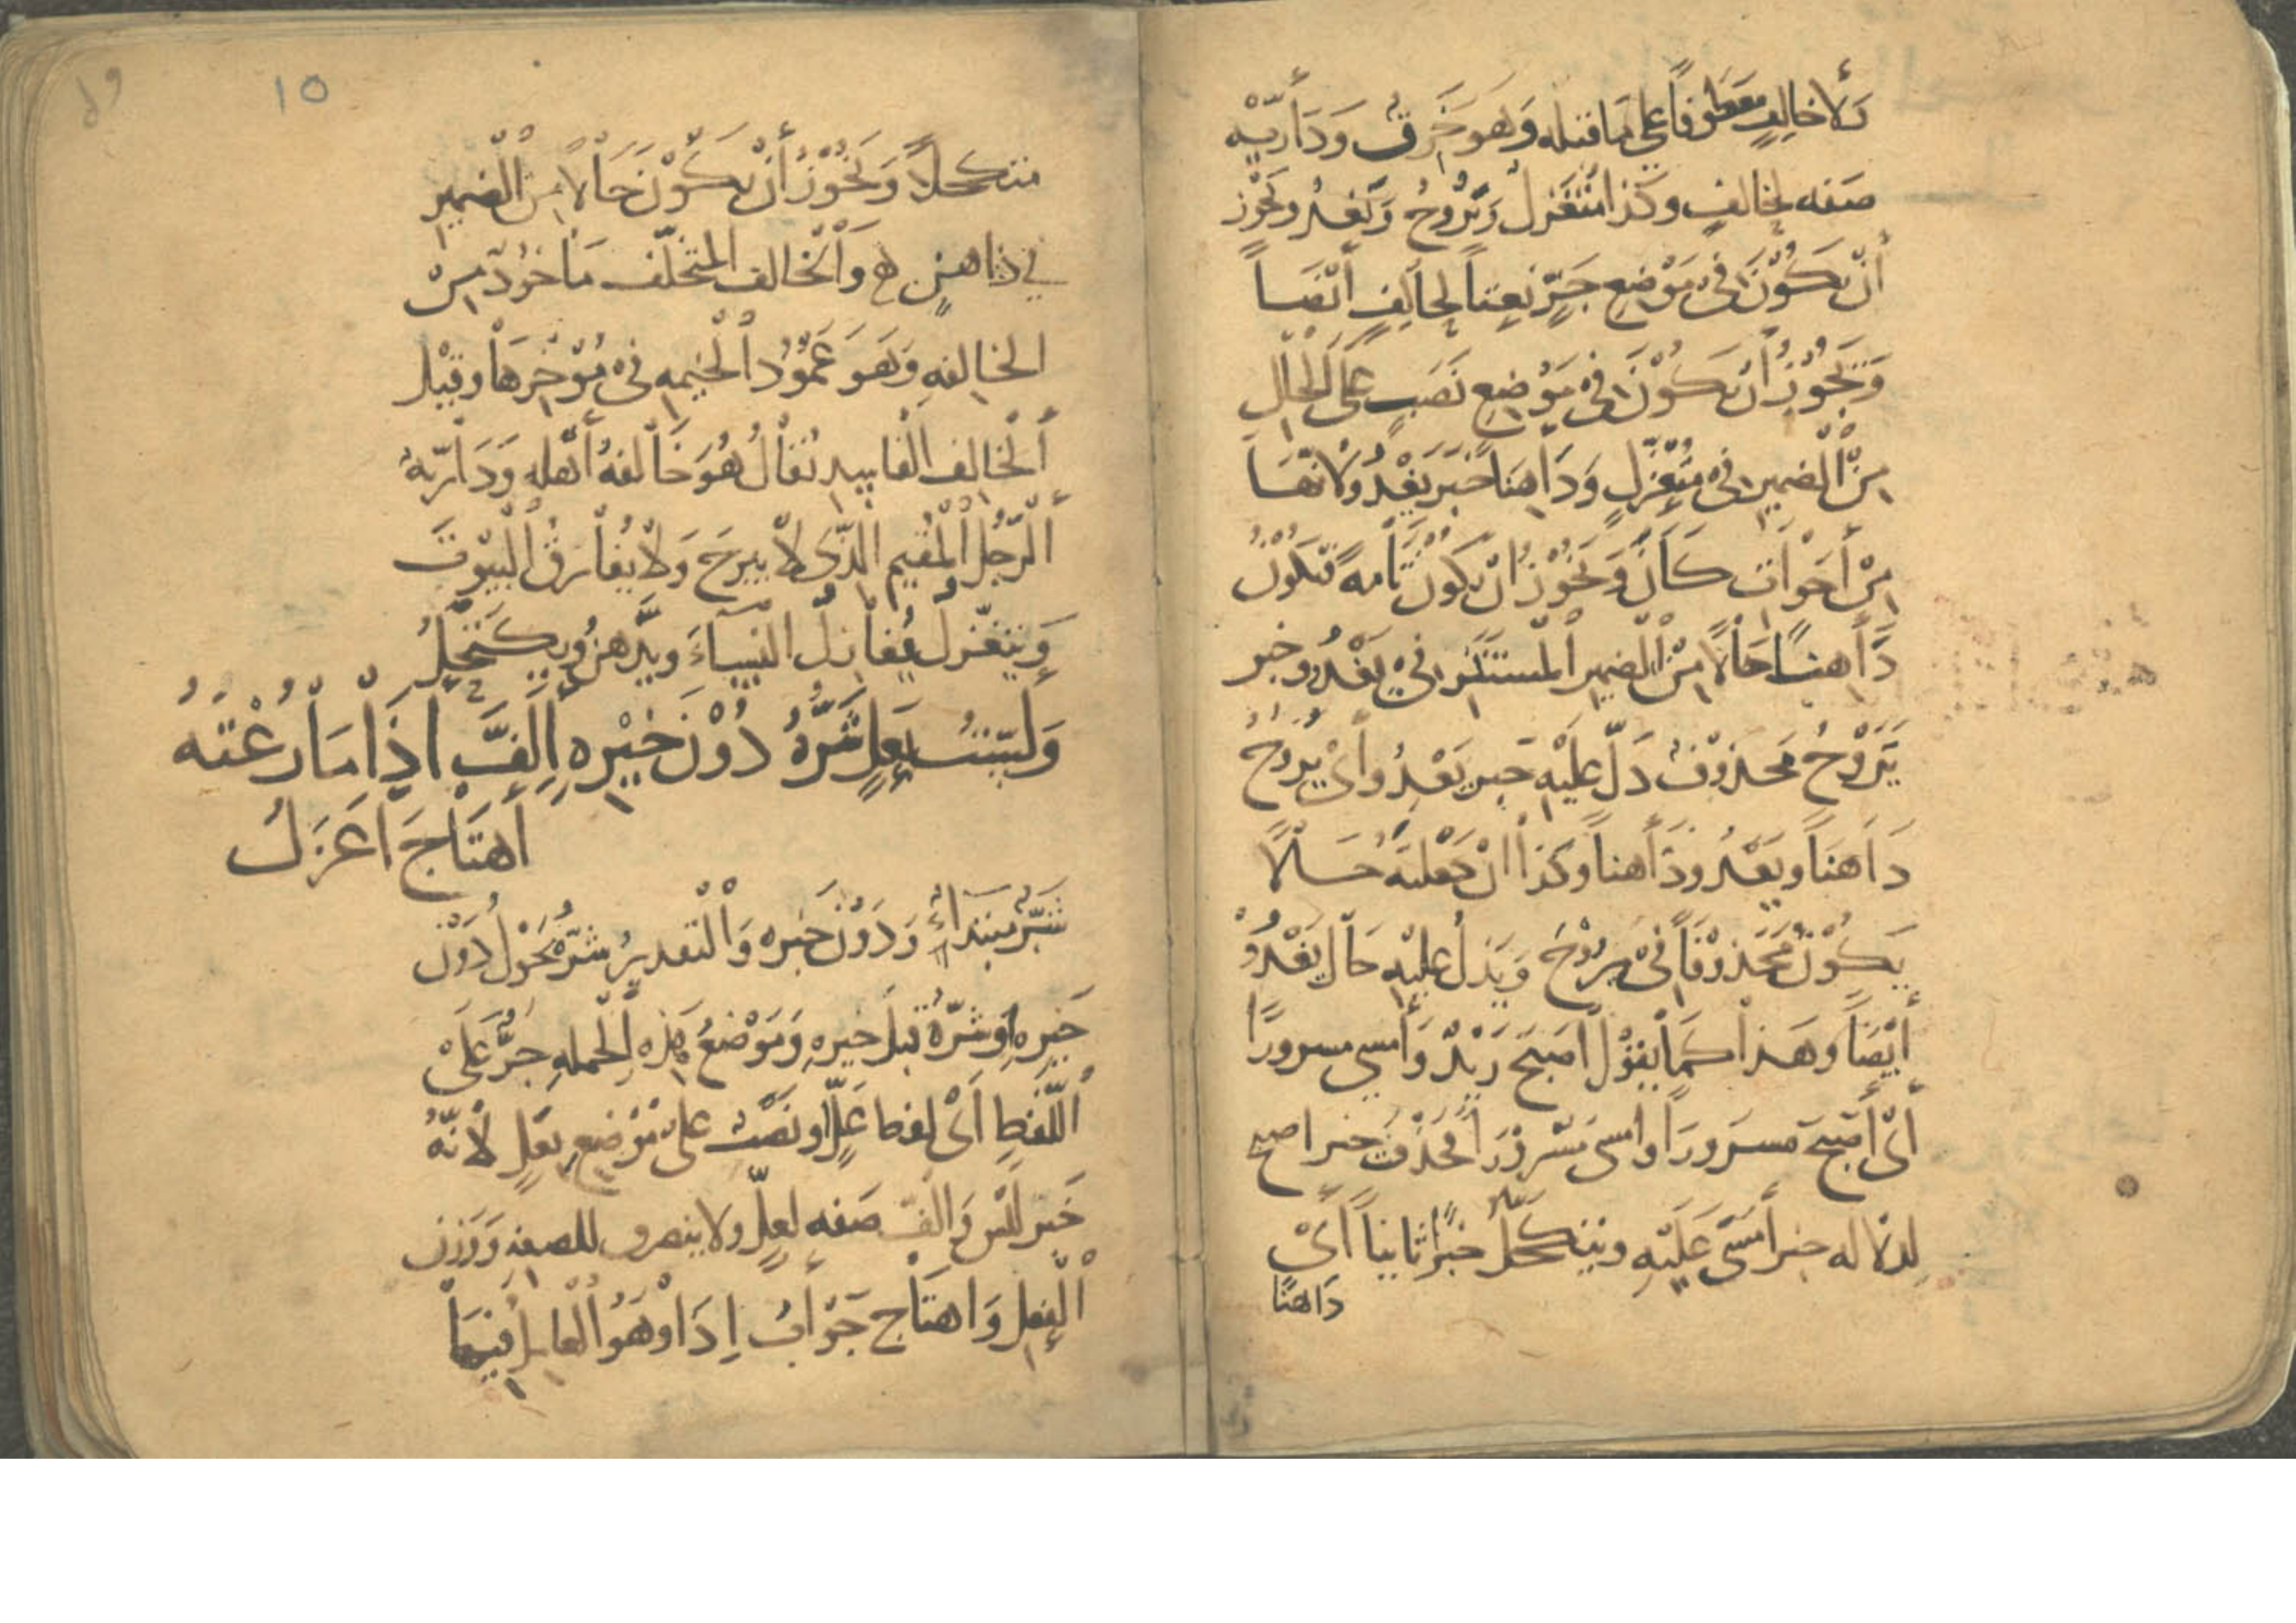 ولا خالفٍ معطوفاً على ما قبله وهو خرق ودارية
صفه لخالفٍ وكذا متغزل ويروح ويغدو ويجوز
أن يكون في موضع جرٍّ نعتاً لخالفٍ أيضاً
ويجوز أن يكون في موضع نصب على الحال
من الضمير في متغزلٍ وداهنا خبر يغدو لأنها
من أخوات كان ويجوز ان يكون تامه فتكون
داهناً حالاً من الضمير المستتر في يغدو وخبر
يروح محذوف دلّ عليه خبر يغدو أي يروح
داهناً ويغدو داهناً وكذا ان جعلته حالاً
يكون محذوفاً في يروح ويدل عليه حال يغدو
أيضاً وهذا كما يقول اصبح زيدٌ وأمسى مسروراً
أي أصبح مسروراً وامسى مسروراً فحذف خبر اصبح
لدلاله خبر أمسى عليه ويتكحل خبراً ثانياً أي
داهنًا
١٥
متكحلاً ويجوز أن يكون حالاً من الضمير
في داهنٍ والخالف المتخلف مأخوذ من
الخالفه وهو عمود الخيمه في مؤخرها وقيل
الخالف الفاسد يقال هو خالفه أهله ودارية
الرجل المقيم الذي لا يبرح ولا يفارق البيوت
ويتغزل يغازل النساء ويدهن ويكتحل
ولست بعلٍ شرّه دون خيره الفّ اذا ما رعته
اهتاج اعزل
شرّ مبتداء ودون خبره والتقدير شرّه نحول دون
خيره اوشره قبل خيره وموضع هذه الجمله جرّ على
اللفظ أي لفظ علّ او نصب على موضع بعلٍ لأنه
خبر ليس والفّ صفه لعلٍّ ولا ينصرف للصفه ووزن
الفعل واهتاج جواب إذا وهو العامل فيها